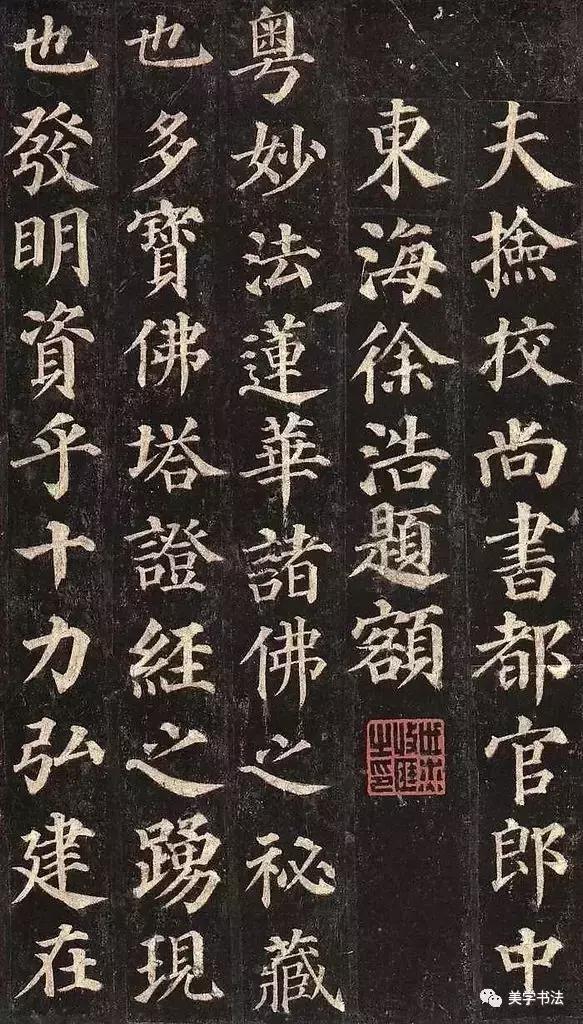 夫撿挍尚書都官郎中
東海徐浩題額
粤妙法蓮華諸佛之祕藏
也多寶佛塔證經之踴現
也發明資乎十力弘建在
美学书法